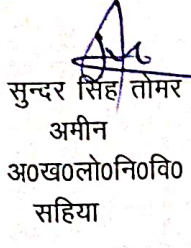 सुन्दर सिंह तोमर
अमीन
अ0ख0लो0नि0वि0
सहिया